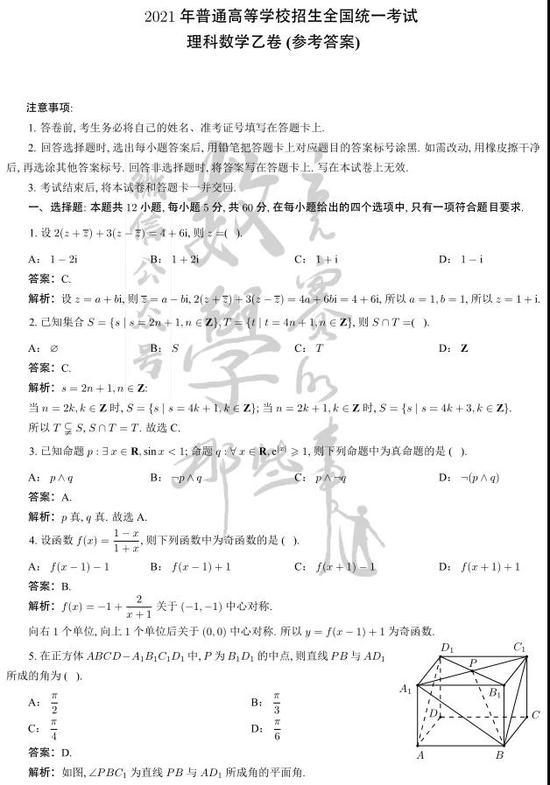 2021 年普通高等学校招生全国统一考试
理科数学乙卷 (参考答案)
注意事项:
1. 答卷前, 考生务必将自己的姓名、准考证号填写在答题卡上.
2. 回答选择题时, 选出每小题答案后, 用铅笔把答题卡上对应题目的答案标号涂黑. 如需改动, 用橡皮擦干净
后, 再选涂其他答案标号. 回答非选择题时, 将答案写在答题卡上. 写在本试卷上无效.
3. 考试结束后, 将本试卷和答题卡一并交回.
一、选择题: 本题共 12 小题, 每小题 5 分, 共 60 分, 在每小题给出的四个选项中, 只有一项符合题目要求.
1. 设 2(z + z̅) + 3(z − z̅) = 4 + 6i, 则 z =( ).
A: 1 − 2i B: 1 + 2i C: 1 + i D: 1 − i
答案: C.
解析: 设 z = a + bi, 则 z̅ = a − bi, 2(z + z̅) + 3(z − z̅) = 4a + 6bi = 4 + 6i, 所以 a = 1, b = 1, 所以 z = 1 + i.
2. 已知集合 S = {s | s = 2n + 1, n ∈ Z}, T = {t | t = 4n + 1, n ∈ Z}, 则 S ∩ T =( ).
A: ∅ B: S C: T D: Z
答案: C.
解析: s = 2n + 1, n ∈ Z:
当 n = 2k, k ∈ Z 时, S = {s | s = 4k + 1, k ∈ Z}; 当 n = 2k + 1, k ∈ Z 时, S = {s | s = 4k + 3, k ∈ Z}.
所以 T ⫋ S, S ∩ T = T. 故选 C.
3. 已知命题 p : ∃ x ∈ R, sin x < 1; 命题 q : ∀ x ∈ R, e^{|x|} ⩾ 1, 则下列命题中为真命题的是 ( ).
A: p ∧ q B: ¬p ∧ q C: p ∧ ¬q D: ¬(p ∧ q)
答案: A.
解析: p 真, q 真. 故选 A.
4. 设函数 f(x) = (1 − x)/(1 + x), 则下列函数中为奇函数的是 ( ).
A: f(x − 1) − 1 B: f(x − 1) + 1 C: f(x + 1) − 1 D: f(x + 1) + 1
答案: B.
解析: f(x) = −1 + 2/(x + 1) 关于 (−1, −1) 中心对称.
向右 1 个单位, 向上 1 个单位后关于 (0, 0) 中心对称. 所以 y = f(x − 1) + 1 为奇函数.
5. 在正方体 ABCD − A₁B₁C₁D₁ 中, P 为 B₁D₁ 的中点, 则直线 PB 与 AD₁
所成的角为 ( ).
A: π/2 B: π/3
C: π/4 D: π/6
答案: D.
解析: 如图, ∠PBC₁ 为直线 PB 与 AD₁ 所成角的平面角.
D₁ C₁
P
A₁ B₁
D C
A B
微信公众号
数学那些事
竞赛的